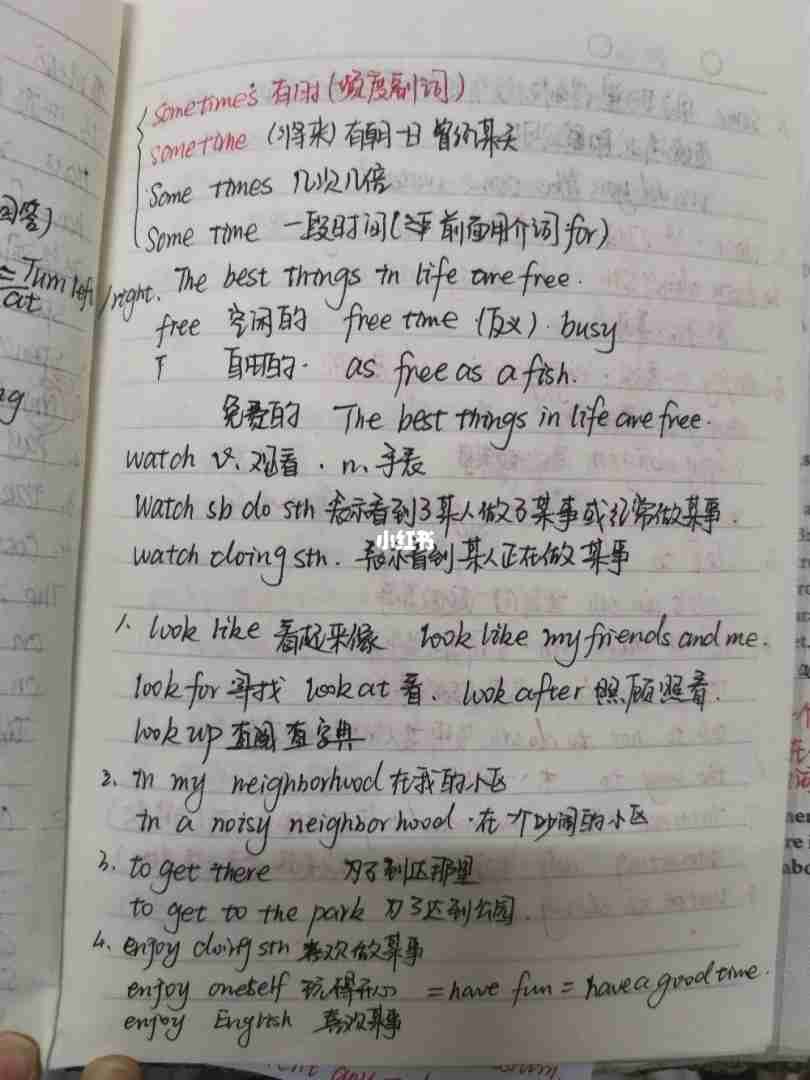 sometimes 有时(频度副词)
sometime (将来)有朝一日 曾经某天
Some times 几次几倍
Some time 一段时间( 前面用介词for)
回答)
= Turn left/right.
at
The best things in life are free.
free 空闲的 free time (反义). busy
自由的. as free as a fish.
免费的 The best things in life are free.
watch v. 观看. n. 手表
Watch sb do sth 表示看到了某人做了某事或经常做某事.
小红书
watch doing sth. 表示看到某人正在做某事
1. look like 看起来像 look like my friends and me.
look for 寻找 look at 看. look after 照顾照看.
look up 查阅 查字典
2. in my neighborhood 在我的小区
in a noisy neighborhood. 在个吵闹的小区
3. to get there 为了到达那里
to get to the park 为了达到公园.
4. enjoy doing sth 喜欢做某事
enjoy oneself 玩得开心 = have fun = have a good time.
enjoy English 喜欢某事